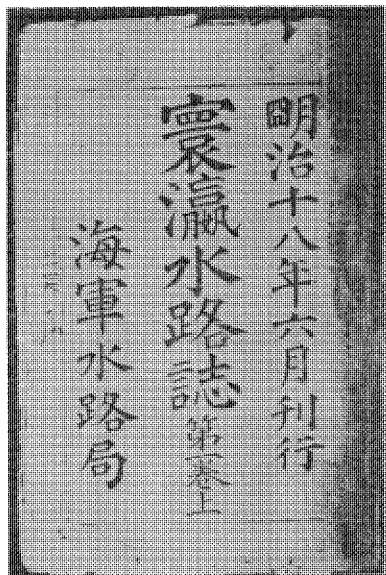 明治十八年六月刊行
寰瀛水路誌 第一卷上
海軍水路局